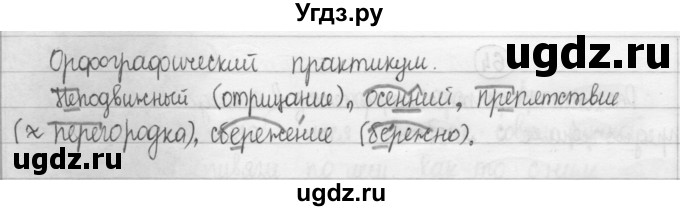 Угдз.ру
Орфографический практикум.
Неподвижный (отрицание), осенний, препятствие
(≈ перегородка), сбережение (бережно).
ugdz.ru ugdz.ru ugdz.ru
ugdz.ru